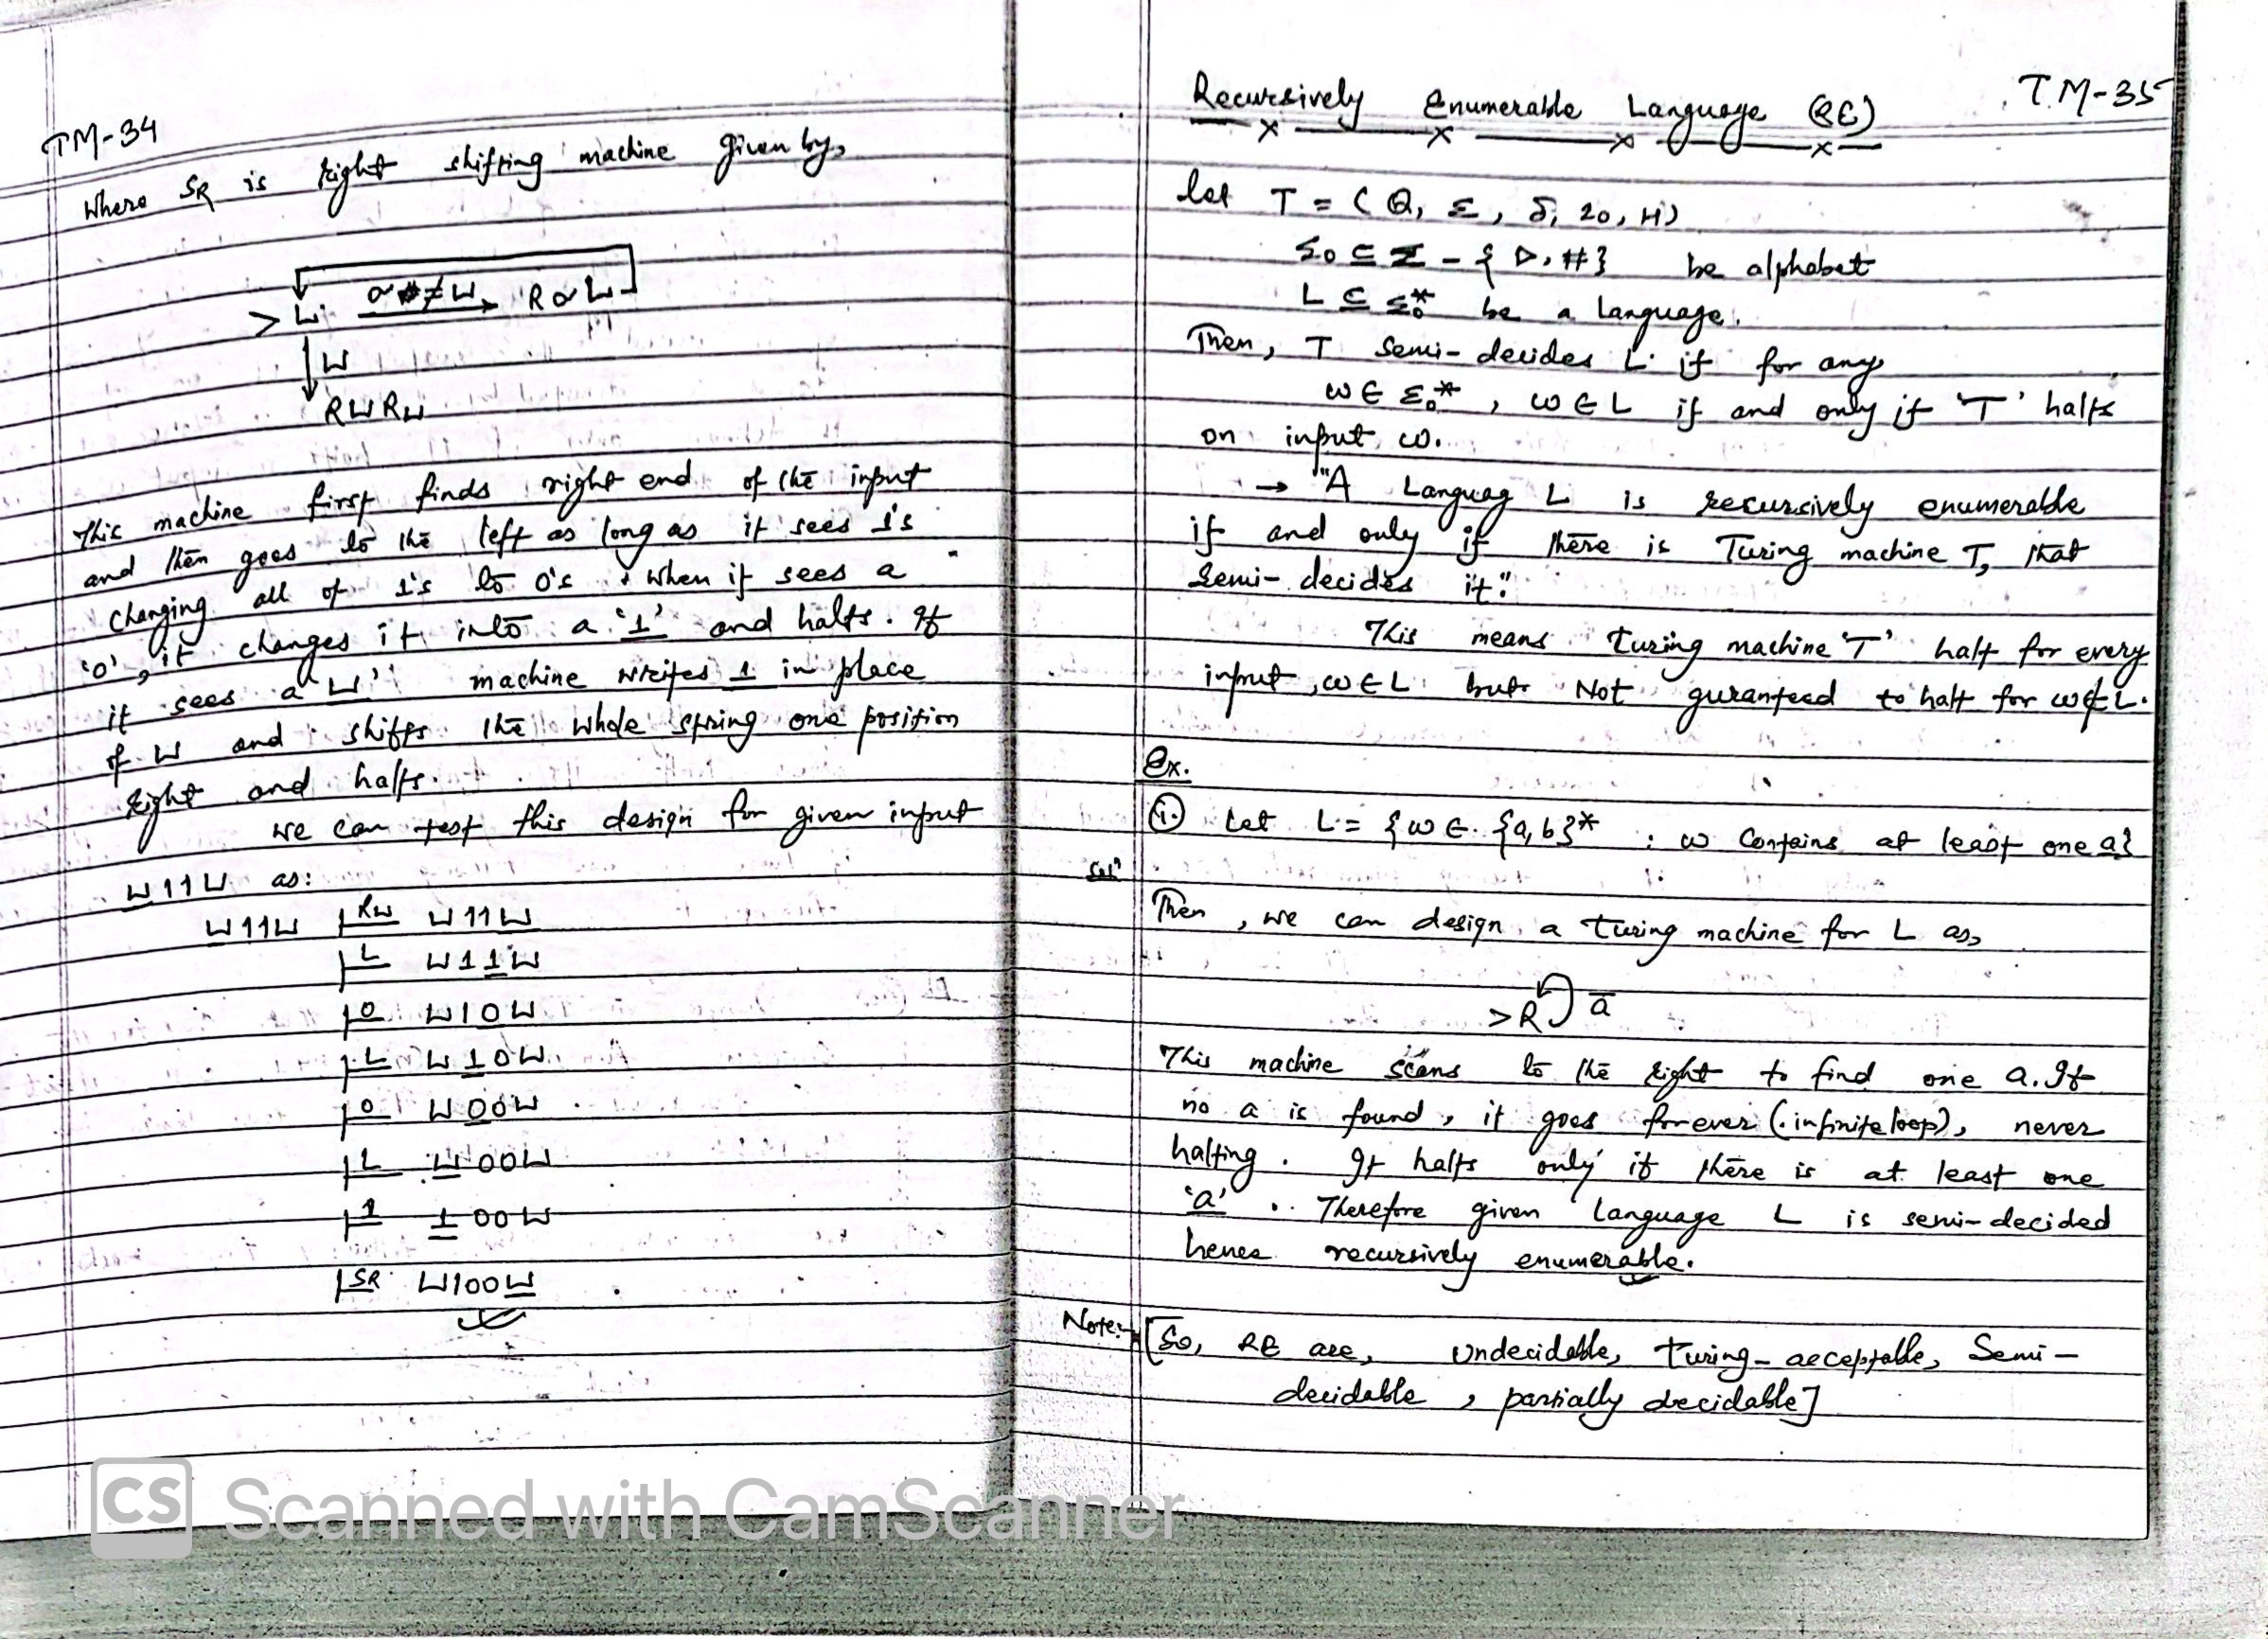 TM-34
Where SR is right shifting machine given by,
> L σ≠⊔ RσL
⊔
R⊔R⊔
This machine first finds right end of the input
and then goes to the left as long as it sees 1's
changing all of 1's to 0's. When it sees a
'0', it changes it into a '1' and halts. If
it sees a '⊔' machine writes 1 in place
of ⊔ and shifts the whole string one position
right and halts.
we can test this design for given input
⊔11⊔ as:
⊔11⊔ |R⊔ ⊔11⊔
|L ⊔11⊔
|0 ⊔10⊔
|L ⊔10⊔
|0 ⊔00⊔
|L ⊔00⊔
|1 100⊔
|SR ⊔100⊔
TM-35
Recursively Enumerable Language (RE)
let T = (Q, Σ, δ, q0, H)
Σ0 ⊆ Σ - {▷, #} be alphabet
L ⊆ Σ0* be a language.
Then, T semi-decides L if for any
ω ∈ Σ0*, ω ∈ L if and only if 'T' halts
on input ω.
→ "A Languag L is recursively enumerable
if and only if there is Turing machine T, that
semi-decides it."
This means turing machine 'T' halt for every
input, ω ∈ L but Not guranteed to halt for ω ∉ L.
Ex.
(i) Let L = {ω ∈ {a, b}* : ω contains at least one a}
Solⁿ
Then, we can design a turing machine for L as,
>R ā
This machine scans to the right to find one a. If
no a is found, it goes forever (infinite loop), never
halting. It halts only if there is at least one
'a'. Therefore given language L is semi-decided
hence recursively enumerable.
Note:- [So, RE are, undecidable, turing-acceptable, Semi-
decidable, partially decidable]
CS Scanned with CamScanner